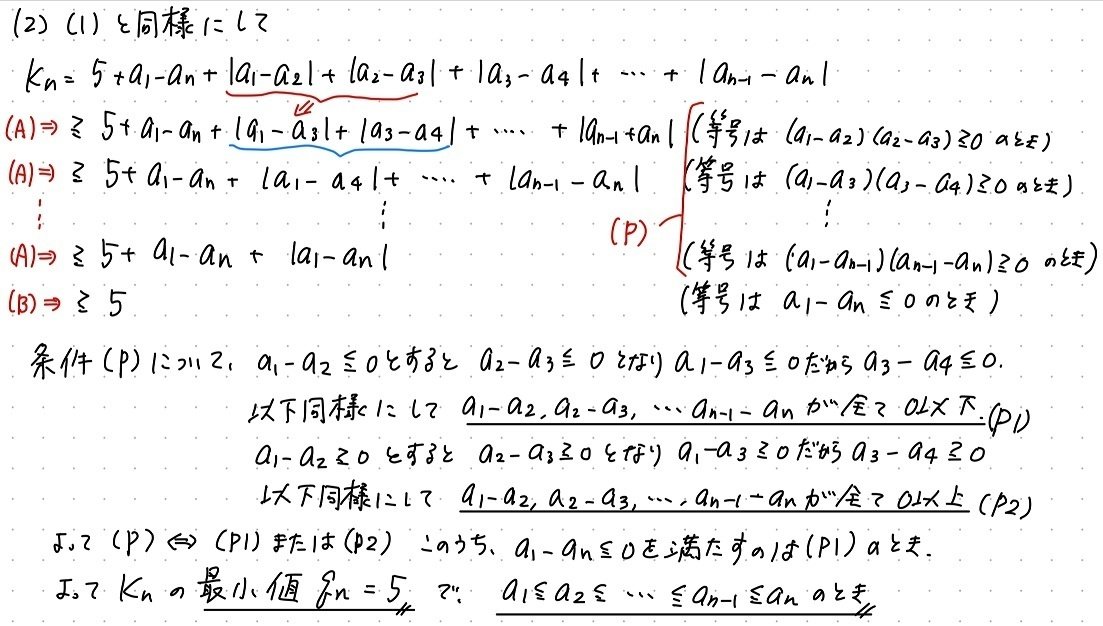 (2) (1) と同様にして
Kn = 5+a₁-an + |a₁-a₂| + |a₂-a₃| + |a₃-a₄| + ⋯ + |an-1 - an|
(A)⇒ ≧ 5+a₁-an + |a₁-a₃| + |a₃-a₄| + ⋯⋯ + |an-1+an| (等号は (a₁-a₂)(a₂-a₃)≧0 のとき)
(A)⇒ ≧ 5+a₁-an + |a₁-a₄| + ⋯⋯ + |an-1 - an| (等号は (a₁-a₃)(a₃-a₄)≧0 のとき)
⋮ ⋮ (P) ⋮
(A)⇒ ≧ 5+ a₁-an + |a₁-an| (等号は (a₁-an-1)(an-1-an)≧0 のとき)
(B)⇒ ≧ 5 (等号は a₁-an ≦ 0 のとき)
条件(P)について、a₁-a₂≦0とすると a₂-a₃≦0 となり a₁-a₃≦0だから a₃-a₄≦0.
以下同様にして a₁-a₂, a₂-a₃, ⋯ an-1-an が全て0以下.(P1)
a₁-a₂≧0 とすると a₂-a₃≧0 となり a₁-a₃≧0だから a₃-a₄≧0
以下同様にして a₁-a₂, a₂-a₃, ⋯, an-1-an が全て0以上 (P2)
よって (P) ⇔ (P1) または (P2) このうち、a₁-an≦0を満たすのは(P1)のとき.
よって Kn の 最小値 qn = 5 で、 a₁≦a₂≦ ⋯ ≦an-1≦an のとき